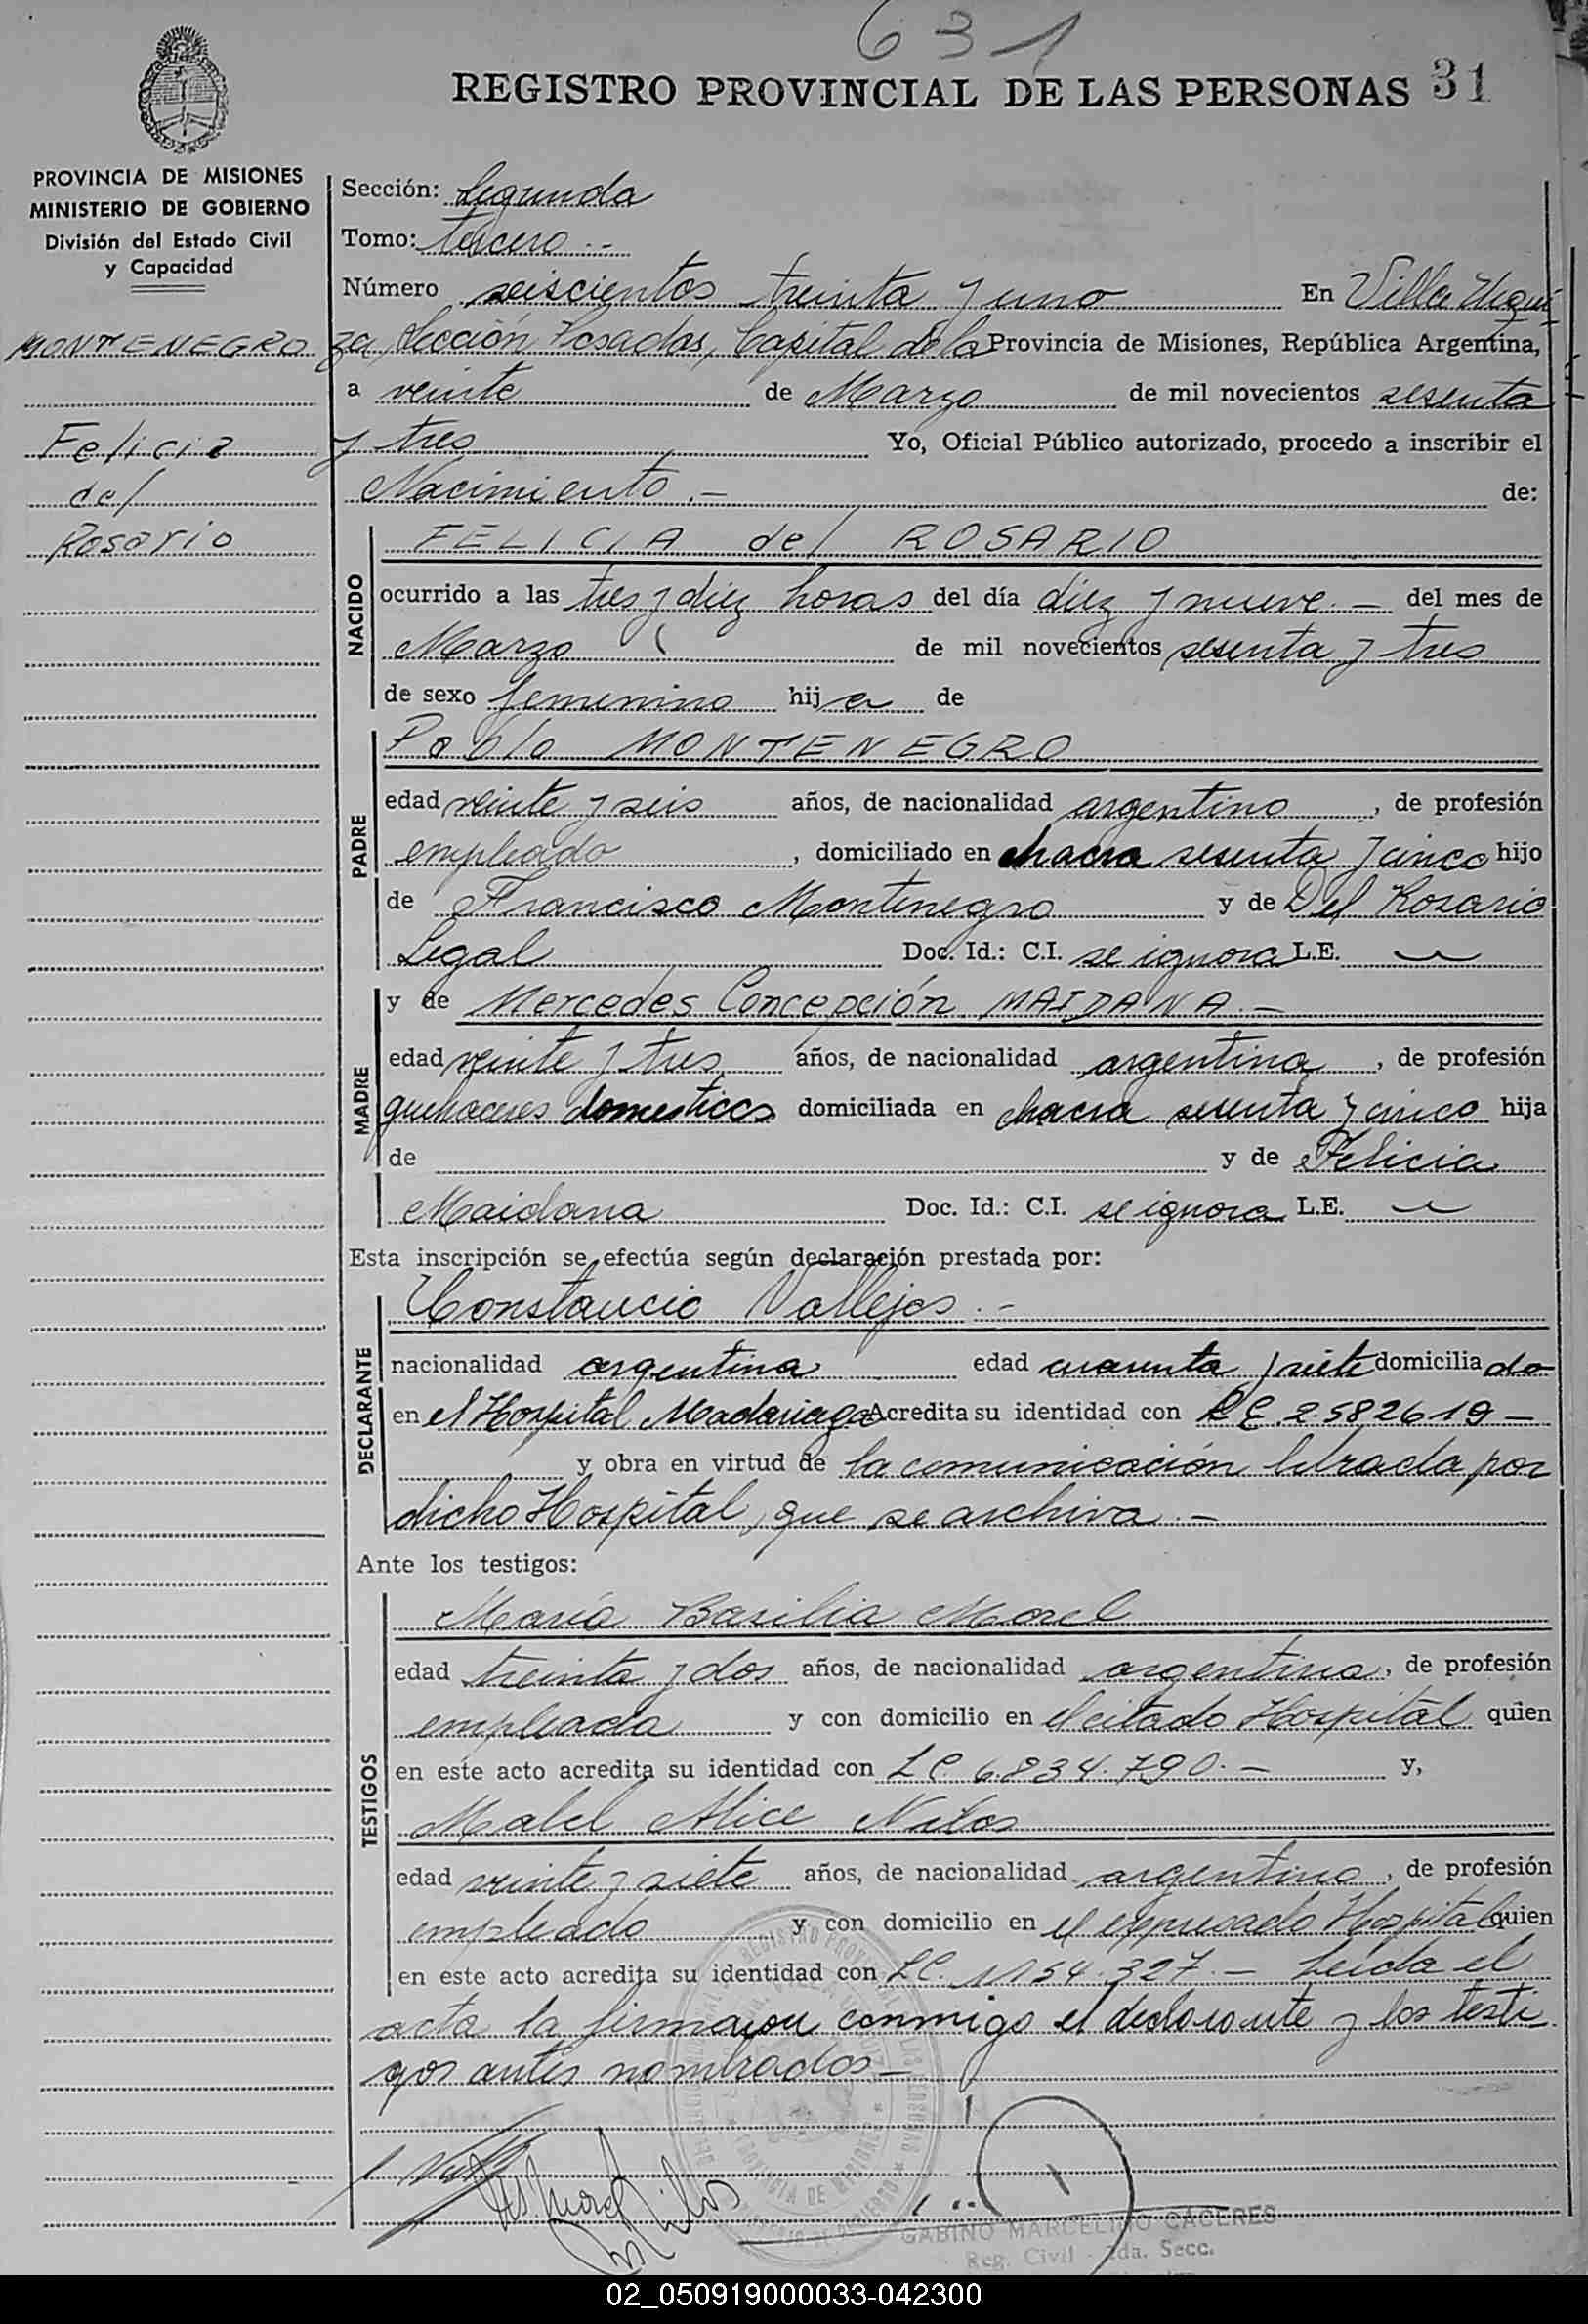 631
REGISTRO PROVINCIAL DE LAS PERSONAS 31
PROVINCIA DE MISIONES
MINISTERIO DE GOBIERNO
División del Estado Civil
y Capacidad
MONTENEGRO
Felicia
del
Rosario
Sección: Segunda
Tomo: tercero.-
Número seiscientos treinta y uno En Villa Urqui
za, Sección Posadas, Capital de la Provincia de Misiones, República Argentina,
a veinte de Marzo de mil novecientos sesenta
y tres Yo, Oficial Público autorizado, procedo a inscribir el
Nacimiento.- de:
NACIDO
FELICIA del ROSARIO
ocurrido a las tres y diez horas del día diez y nueve.- del mes de
Marzo de mil novecientos sesenta y tres
de sexo femenino hija de
PADRE
Pablo MONTENEGRO
edad veinte y seis años, de nacionalidad argentino, de profesión
empleado, domiciliado en chacra sesenta y cinco hijo
de Francisco Montenegro y de Del Rosario
Legal Doc. Id.: C.I. se ignora L.E.
MADRE
y de Mercedes Concepción MAIDANA.-
edad veinte y tres años, de nacionalidad argentina, de profesión
quehaceres domesticos domiciliada en chacra sesenta y cinco hija
de y de Felicia
Maidana Doc. Id.: C.I. se ignora L.E.
Esta inscripción se efectúa según declaración prestada por:
DECLARANTE
Constancio Vallejos.-
nacionalidad argentina edad cuarenta y siete domiciliado
en el Hospital Madariaga Acredita su identidad con L.E. 2.582619-
y obra en virtud de la comunicación librada por
dicho Hospital, que se archiva.-
Ante los testigos:
TESTIGOS
María Basilia Morel
edad treinta y dos años, de nacionalidad argentina, de profesión
empleada y con domicilio en el citado Hospital quien
en este acto acredita su identidad con L.C. 6.834.790.- y,
Mabel Alice
edad veinte y siete años, de nacionalidad argentina, de profesión
empleado y con domicilio en el expresado Hospital quien
en este acto acredita su identidad con L.C. 1154.327.- Leída el
acta la firmaron conmigo el declarante y los testi
gos antes nombrados-
GABINO MARCELINO CACERES
Reg. Civil - 2da. Secc.
02_050919000033-042300